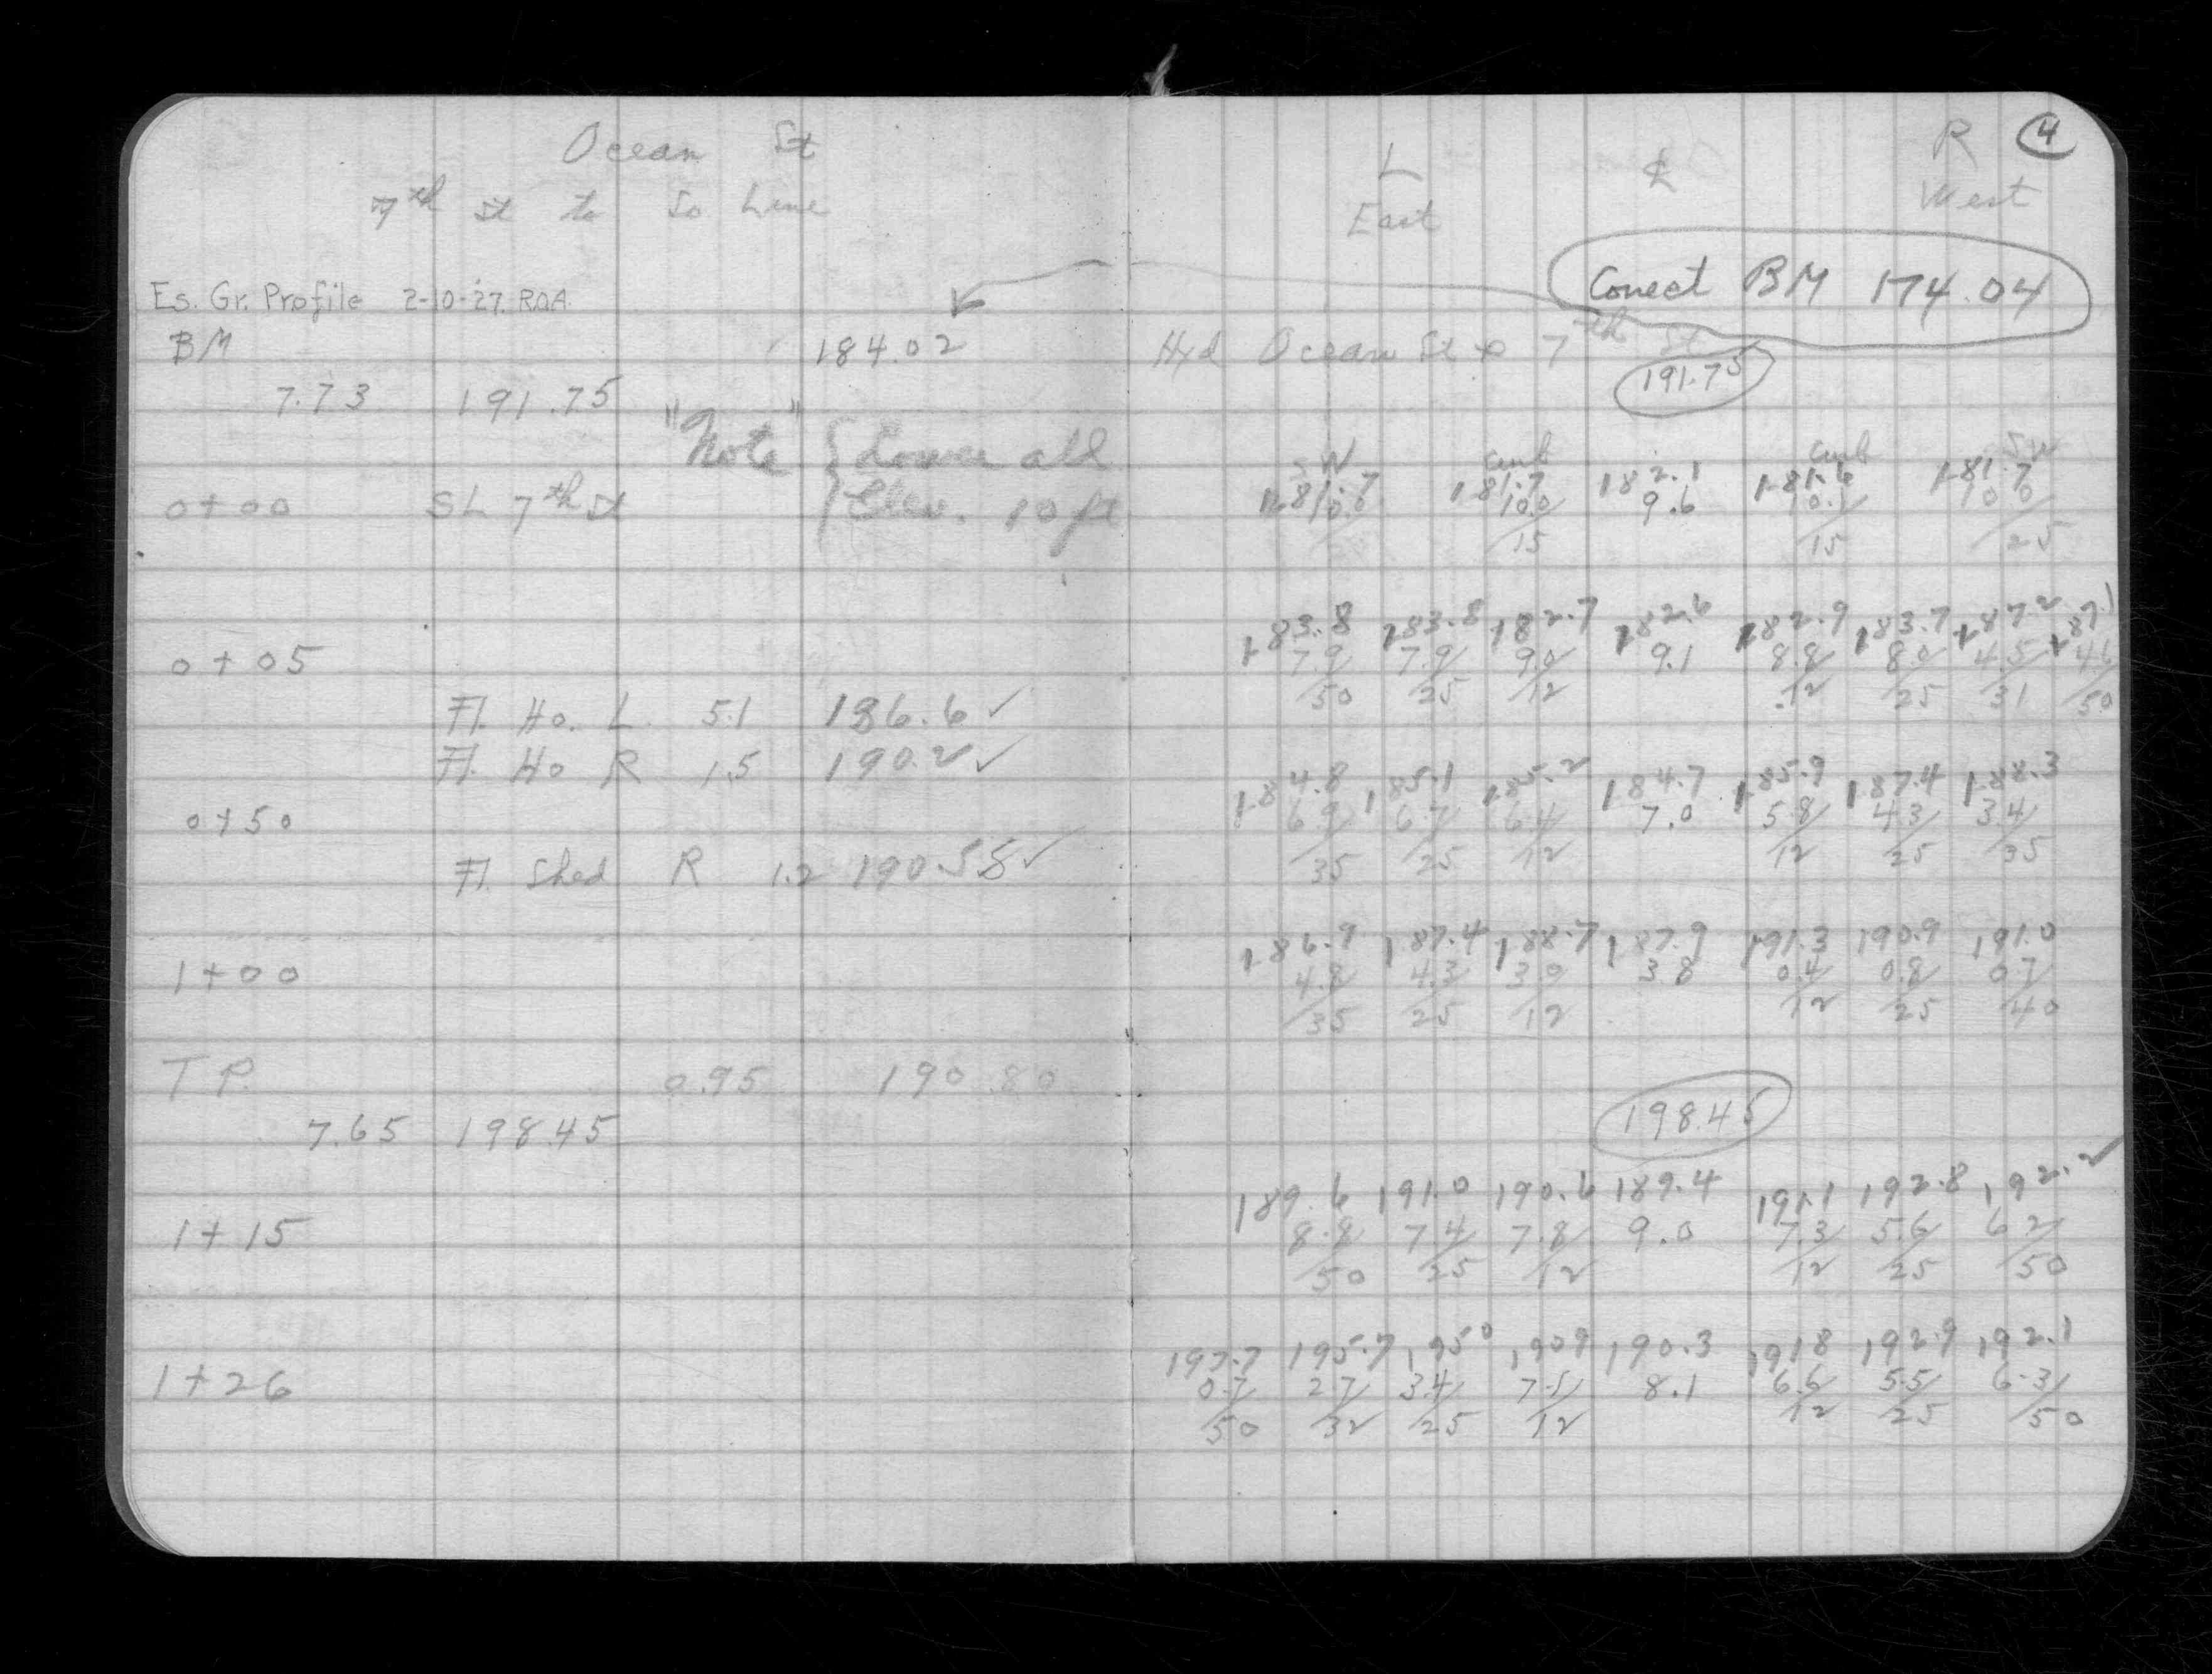 Ocean St
7th st to So Line
Es. Gr. Profile 2-10-27. R.O.A.
BM 184.02
7.73 191.75
"Note" { Lower all
Elev. 10 ft
0+00 SL 7th St
0+05
Fl. Ho. L 5.1 186.6 ✓
Fl. Ho R 1.5 190.2 ✓
0+50
Fl. Shed R 1.2 190.55 ✓
1+00
T P. 0.95 190.80
7.65 198.45
1+15
1+26
4
L ℄ R
East West
Correct BM 174.04
Hyd Ocean St & 7th St
191.75
SW Curb Curb SW
181.7 181.7 182.1 181.6 181.7
10.0 10.0 9.6 10.1 10.0
15 15 25
183.8 183.8 182.7 182.6 182.9 183.7 187.2 187.1
7.9 7.9 9.0 9.1 8.8 8.0 4.5 4.6
50 25 12 12 25 31 50
184.8 185.1 185.2 184.7 185.9 187.4 188.3
6.9 6.7 6.4 7.0 5.8 4.3 3.4
35 25 12 12 25 35
186.9 187.4 188.7 187.9 191.3 190.9 191.0
4.8 4.3 3.0 3.8 0.4 0.8 0.7
35 25 12 12 25 40
198.45
189.6 191.0 190.6 189.4 191.1 192.8 192.2
8.8 7.4 7.8 9.0 7.3 5.6 6.2
50 25 12 12 25 50
197.7 195.7 195.0 190.9 190.3 191.8 192.9 192.1
0.7 2.7 3.4 7.5 8.1 6.6 5.5 6.3
50 32 25 12 12 25 50